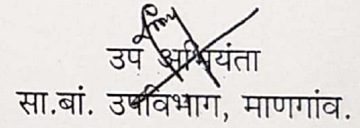 उप अभियंता
सा.बां. उपविभाग, माणगांव.